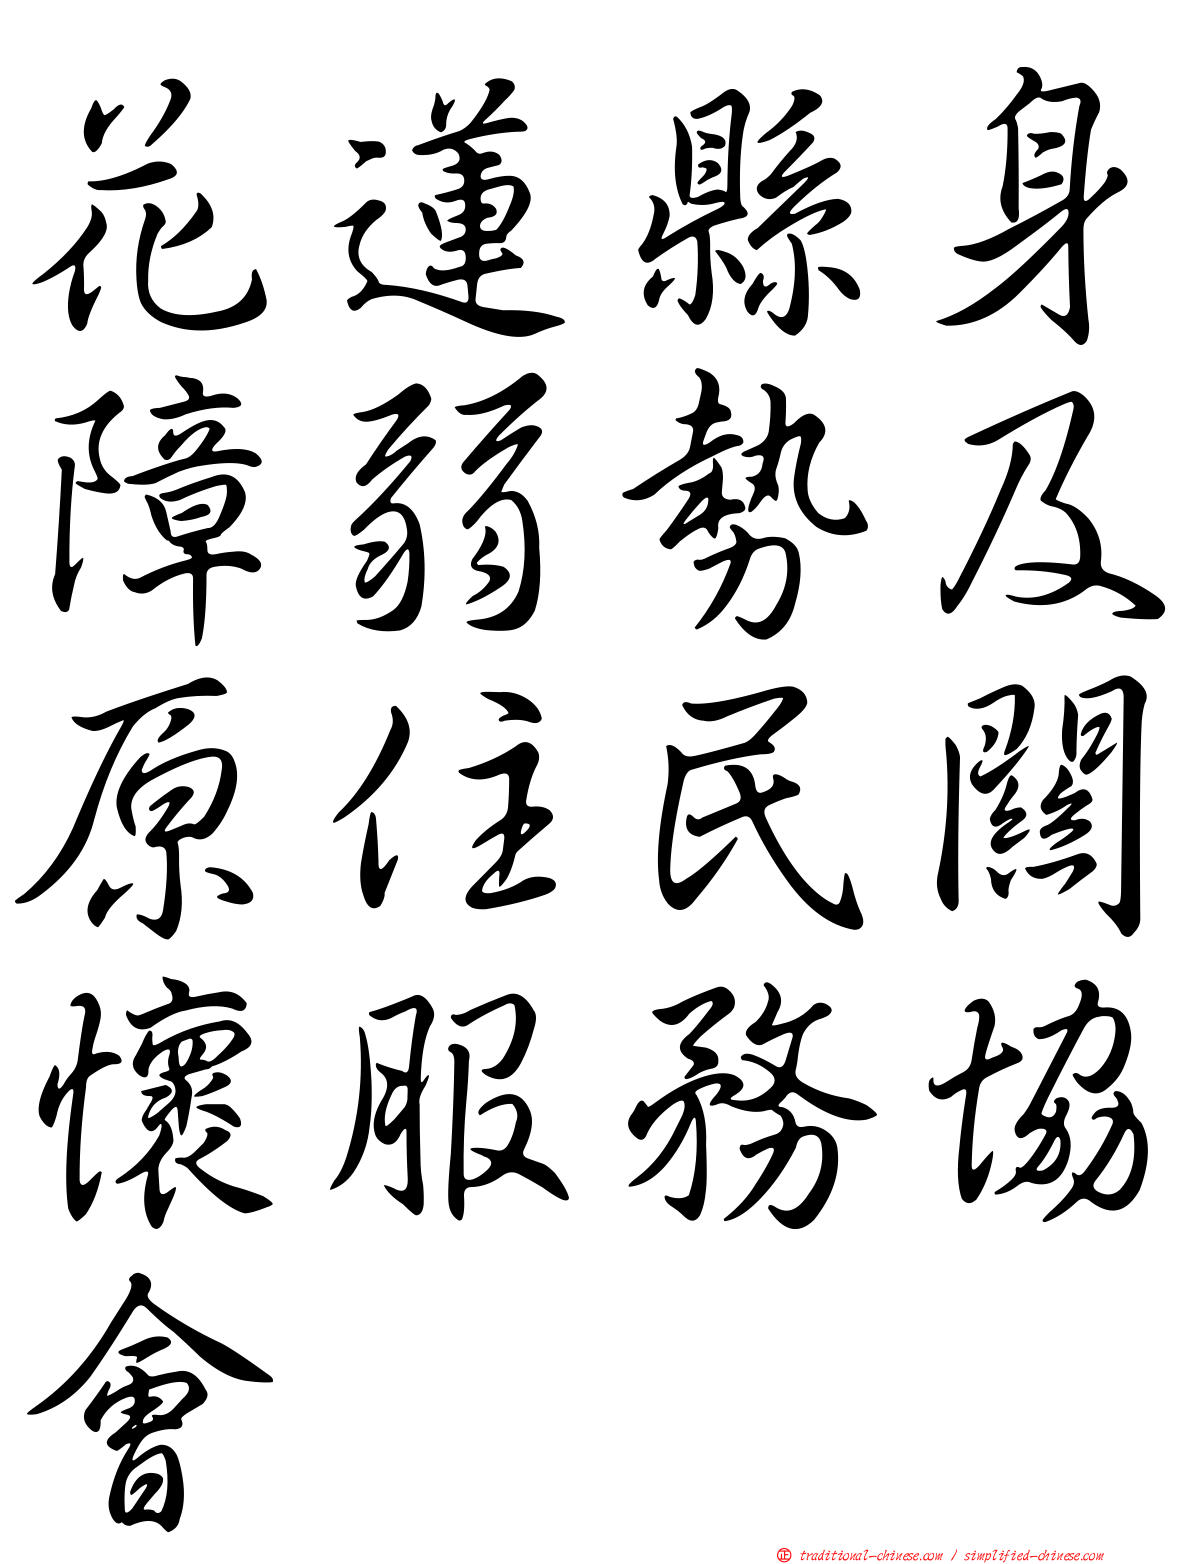 花蓮縣身
障弱勢及
原住民關
懷服務協
會
正 traditional-chinese.com / simplified-chinese.com